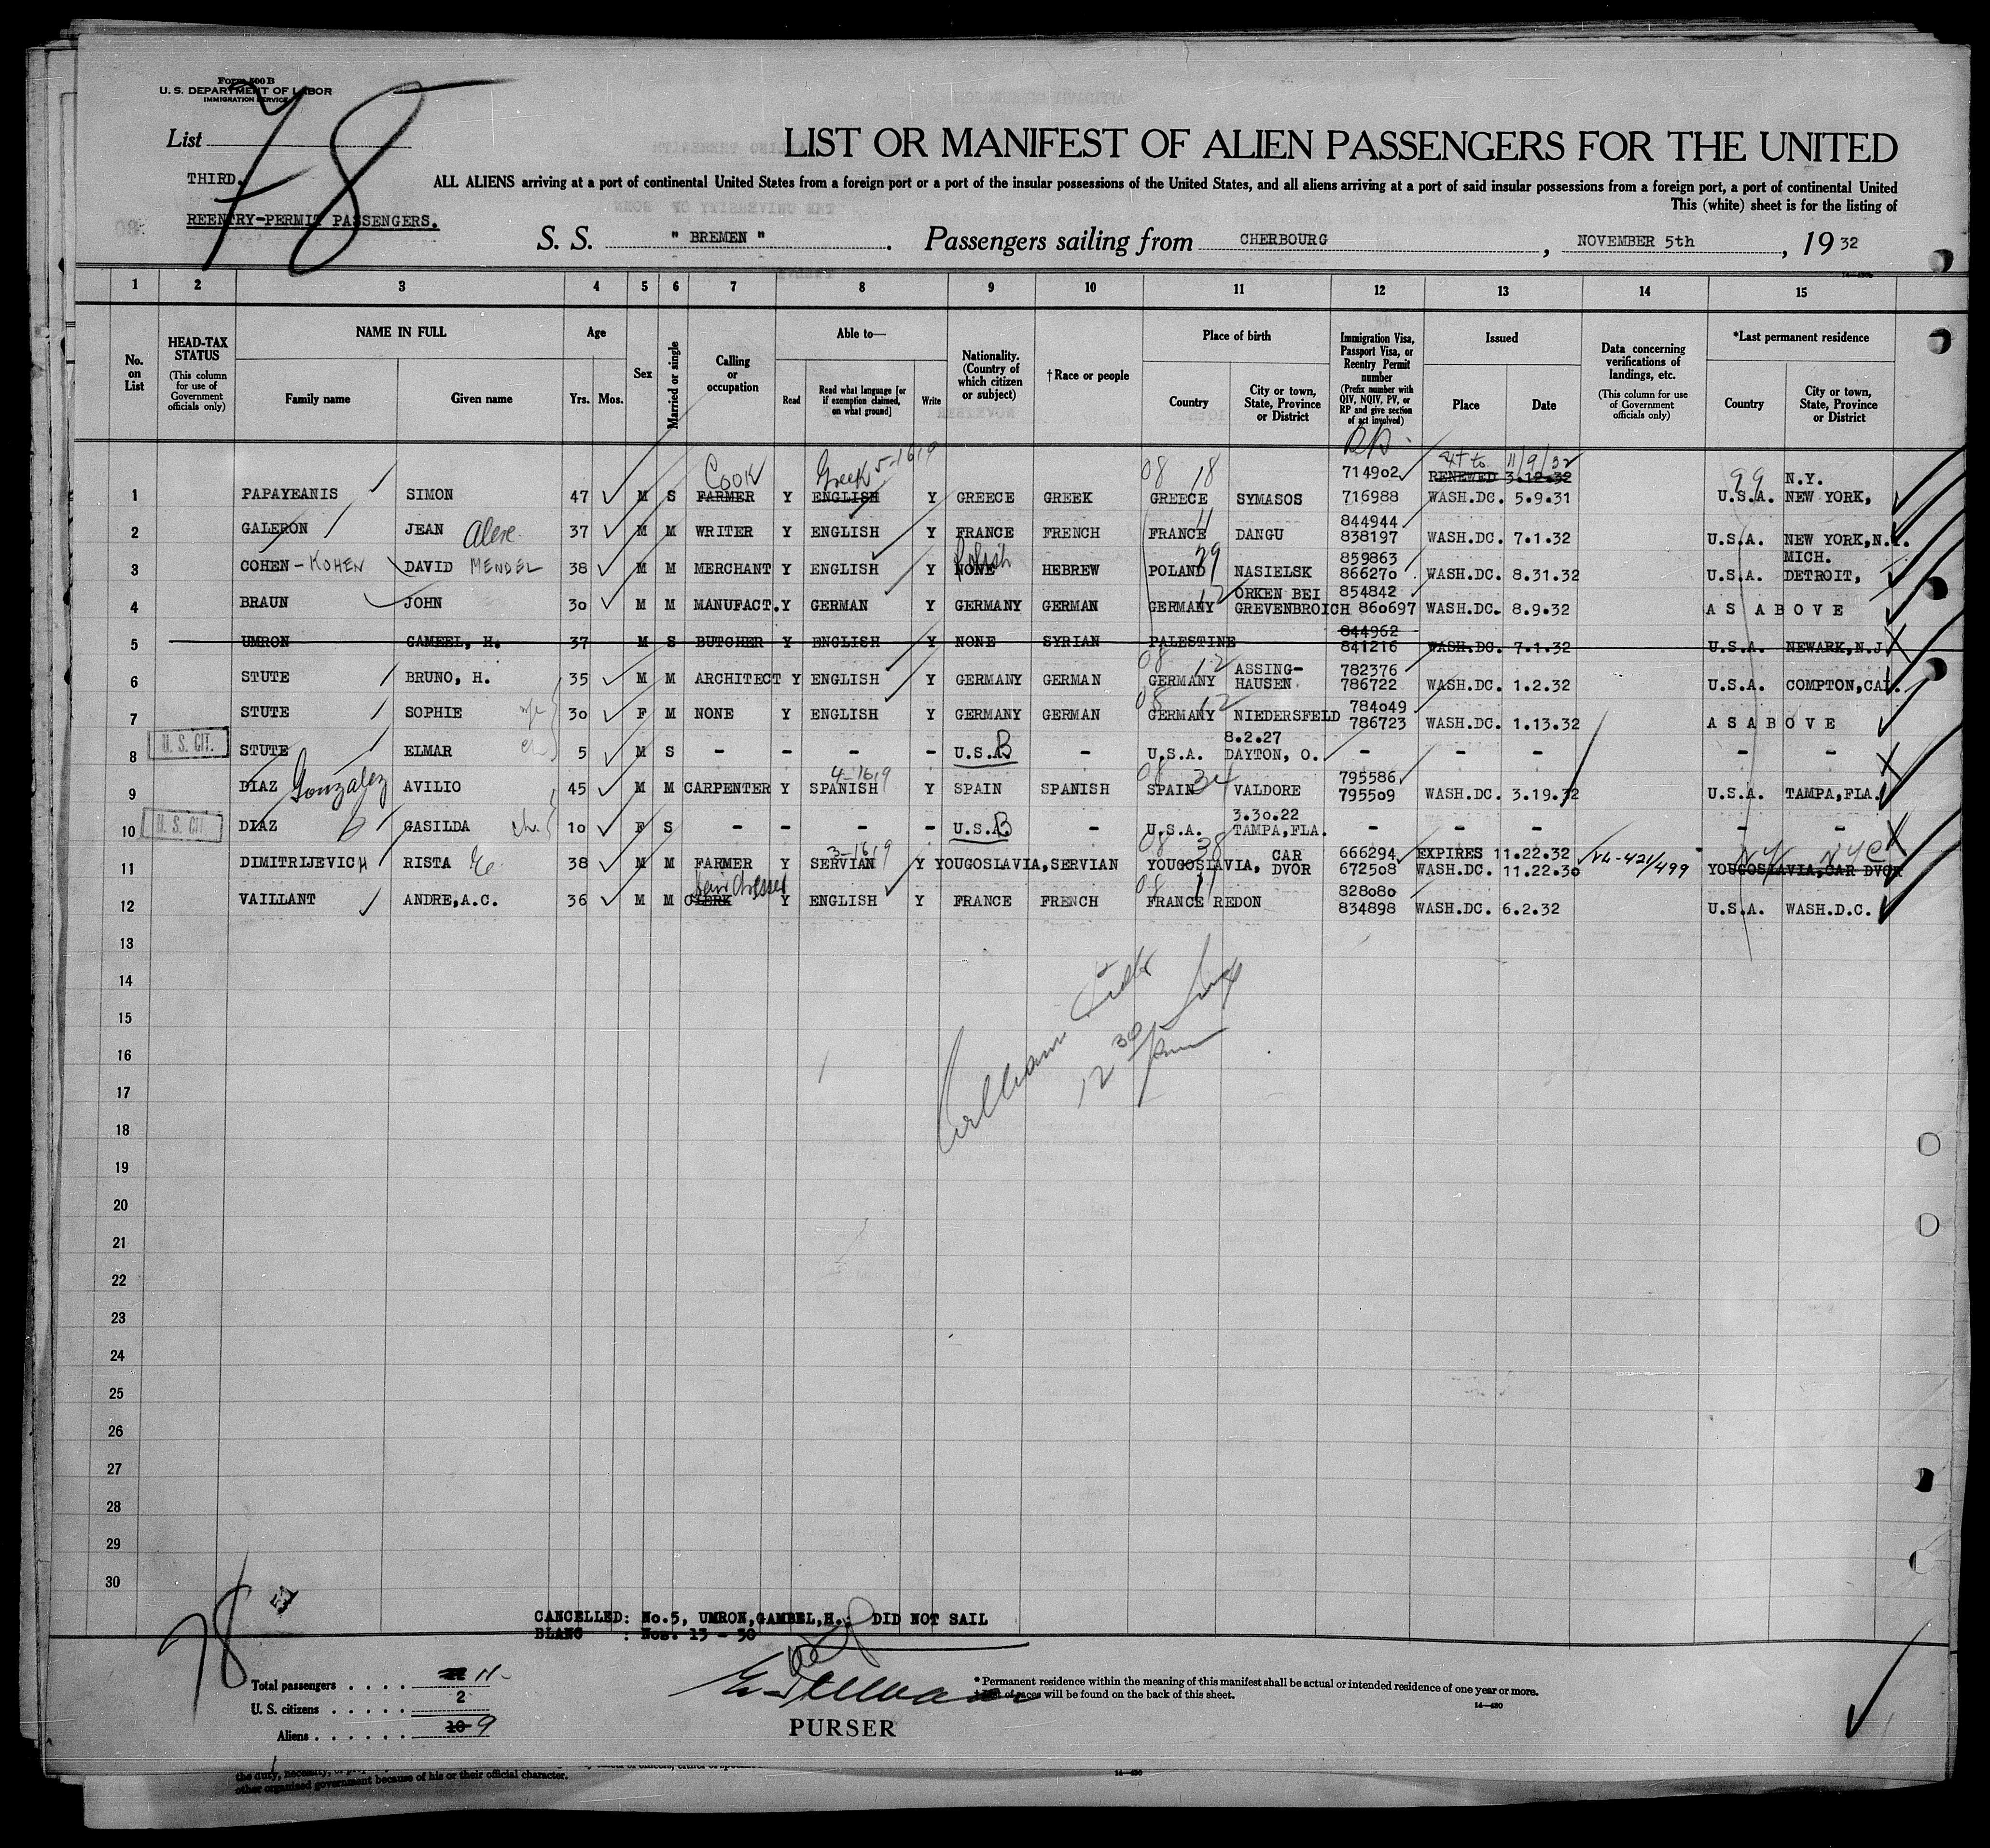 Form 500 B
U. S. DEPARTMENT OF LABOR
IMMIGRATION SERVICE
List
78
THIRD.
REENTRY-PERMIT PASSENGERS.
LIST OR MANIFEST OF ALIEN PASSENGERS FOR THE UNITED
ALL ALIENS arriving at a port of continental United States from a foreign port or a port of the insular possessions of the United States, and all aliens arriving at a port of said insular possessions from a foreign port, a port of continental United
This (white) sheet is for the listing of
S. S. " BREMEN " . Passengers sailing from CHERBOURG , NOVEMBER 5th , 19 32
1 2 3 4 5 6 7 8 9 10 11 12 13 14 15
No. on List
HEAD-TAX STATUS
(This column for use of Government officials only)
NAME IN FULL
Family name Given name
Age
Yrs. Mos.
Sex
Married or single
Calling or occupation
Able to—
Read Read what language [or if exemption claimed, on what ground] Write
Nationality. (Country of which citizen or subject)
†Race or people
Place of birth
Country City or town, State, Province or District
Immigration Visa, Passport Visa, or Reentry Permit number
(Prefix number with QIV, NQIV, PV, or RP and give section of act involved)
Issued
Place Date
Data concerning verifications of landings, etc.
(This column for use of Government officials only)
*Last permanent residence
Country City or town, State, Province or District
Cook Greek 5-1619 08 18 714902 11/9/32 RENEWED 3.12.32 99 N.Y.
1 PAPAYEANIS SIMON 47 M S FARMER Y ENGLISH Y GREECE GREEK GREECE SYMASOS 716988 WASH.DC. 5.9.31 U.S.A. NEW YORK,
844944
2 GALERON JEAN 37 M M WRITER Y ENGLISH Y FRANCE FRENCH FRANCE 11 DANGU 838197 WASH.DC. 7.1.32 U.S.A. NEW YORK,N.Y.
Polish 859863 MICH.
3 COHEN - KOHEN DAVID MENDEL 38 M M MERCHANT Y ENGLISH Y NONE HEBREW POLAND 29 NASIELSK 866270 WASH.DC. 8.31.32 U.S.A. DETROIT,
ORKEN BEI 854842
4 BRAUN JOHN 30 M M MANUFACT. Y GERMAN Y GERMANY GERMAN GERMANY 12 GREVENBROICH 860697 WASH.DC. 8.9.32 A S A B O V E
844962
5 UMRON GAMEEL, H. 37 M S BUTCHER Y ENGLISH Y NONE SYRIAN PALESTINE 841216 WASH.DC. 7.1.32 U.S.A. NEWARK,N.J.
08 12 ASSING- 782376
6 STUTE BRUNO, H. 35 M M ARCHITECT Y ENGLISH Y GERMANY GERMAN GERMANY HAUSEN 786722 WASH.DC. 1.2.32 U.S.A. COMPTON,CAL.
08 12 784049
7 STUTE SOPHIE 30 F M NONE Y ENGLISH Y GERMANY GERMAN GERMANY NIEDERSFELD 786723 WASH.DC. 1.13.32 A S A B O V E
U. S. CIT. 8.2.27
8 STUTE ELMAR ch 5 M S - - - - U.S.A. B - U.S.A. DAYTON, O. - - - - -
4-1619 08 34 795586
9 DIAZ Gonzalez AVILIO 45 M M CARPENTER Y SPANISH Y SPAIN SPANISH SPAIN VALDORE 795509 WASH.DC. 3.19.32 U.S.A. TAMPA,FLA.
U. S. CIT. 3.30.22
10 DIAZ GASILDA ch. 10 F S - - - - U.S.A. B - U.S.A. TAMPA,FLA. - - - - -
3-1619 08 38 CAR 666294 EXPIRES 11.22.32 N.Y. N Y C
11 DIMITRIJEVICH RISTA 38 M M FARMER Y SERVIAN Y YOUGOSLAVIA, SERVIAN YOUGOSLAVIA, DVOR 672508 WASH.DC. 11.22.30 VL-421/499 YOUGOSLAVIA,CAR DVOR
hair dresser 08 11 828080
12 VAILLANT ANDRE,A.C. 36 M M CLERK Y ENGLISH Y FRANCE FRENCH FRANCE REDON 834898 WASH.DC. 6.2.32 U.S.A. WASH.D.C.
13
14
15
16
12 30
17
18
19
20
21
22
23
24
25
26
27
28
29
30
78
CANCELLED: No.5, UMRON,GAMBEL,H.; DID NOT SAIL
BLANC : Nos. 13 - 30
Total passengers . . . . 11
U. S. citizens . . . . . 2
Aliens . . . . . . 10 9
PURSER
* Permanent residence within the meaning of this manifest shall be actual or intended residence of one year or more.
† List of races will be found on the back of this sheet.
14—430
other organized government because of his or their official character.
14—430